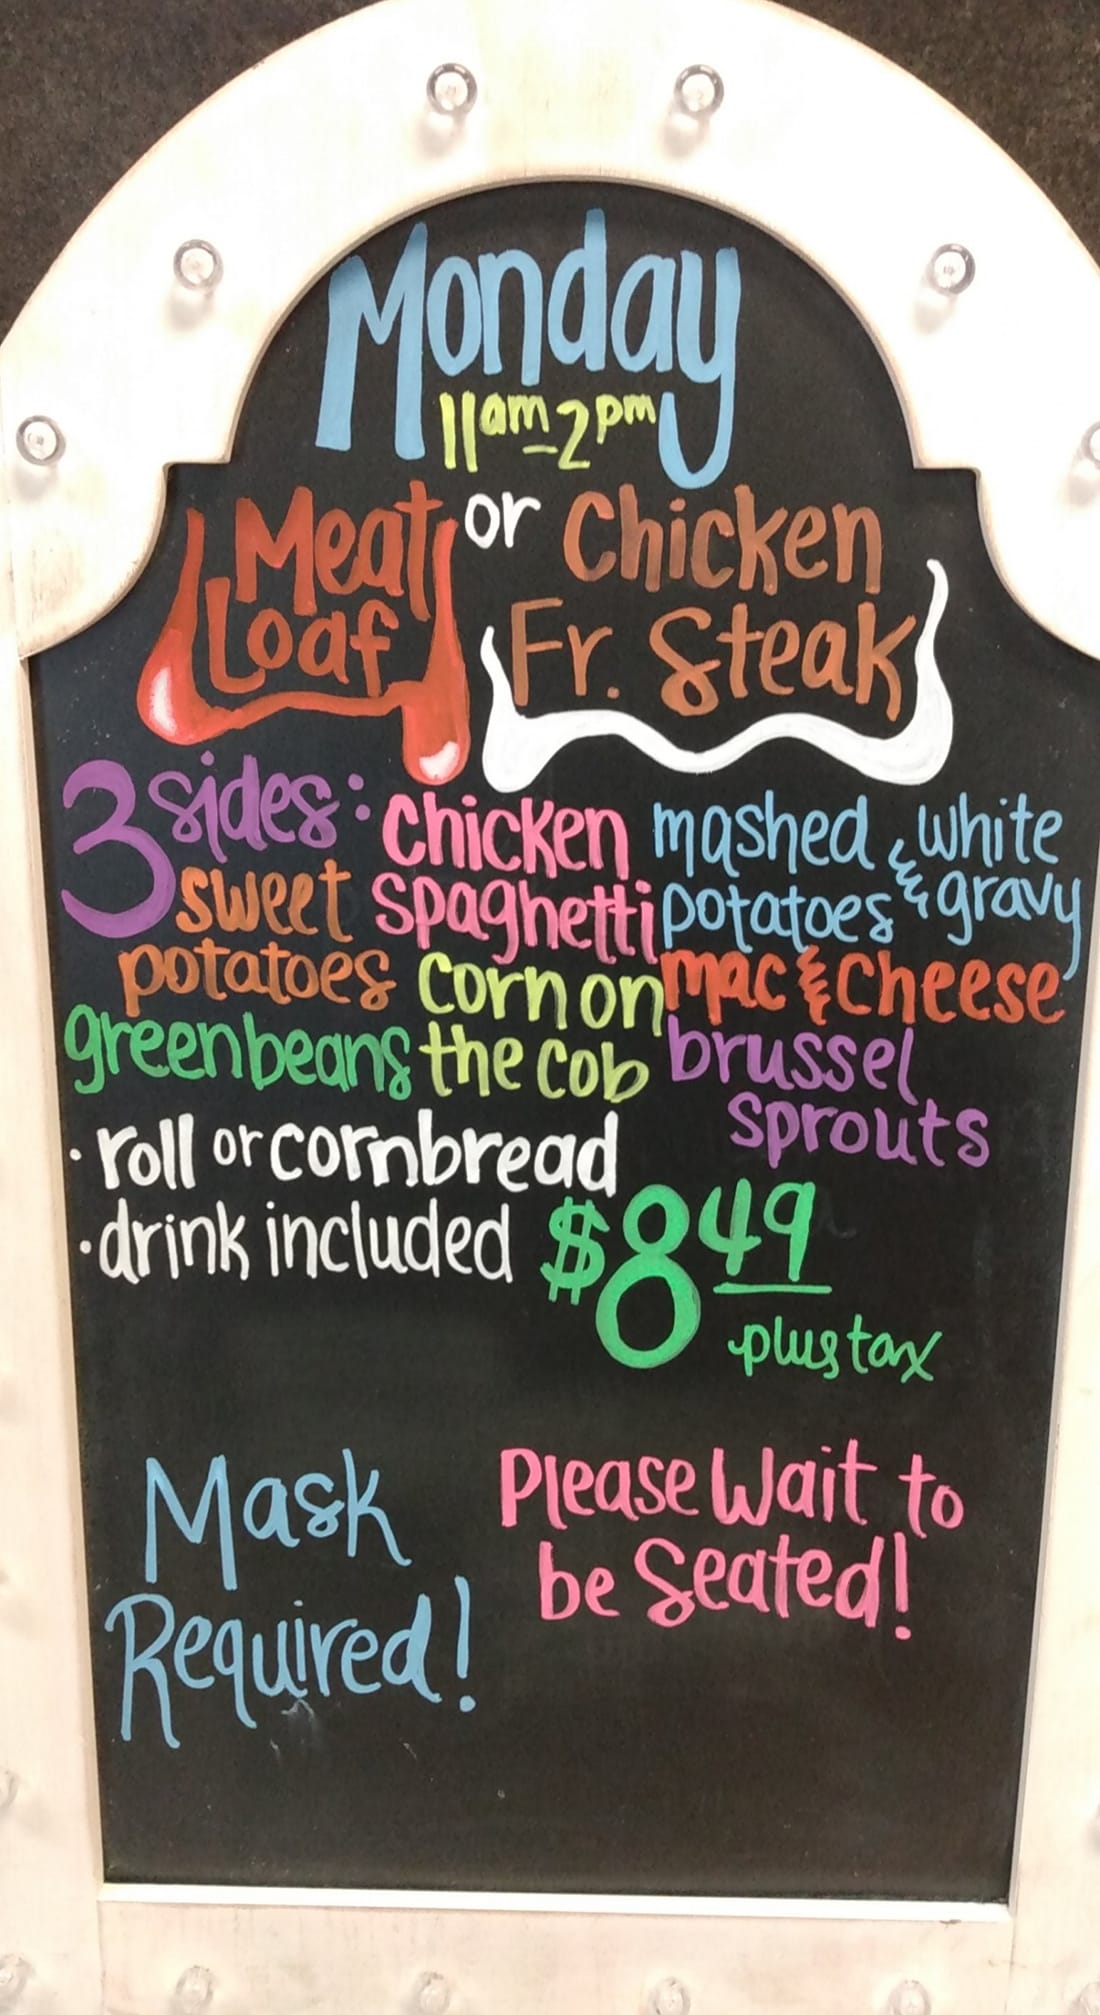 Monday
11am-2pm
Meat Loaf or Chicken Fr. Steak
3 sides:
sweet potatoes
greenbeans
chicken spaghetti
corn on the cob
mashed potatoes & white gravy
mac & cheese
brussel sprouts
· roll or cornbread
· drink included
$8 49
plus tax
Mask Required!
Please Wait to be Seated!